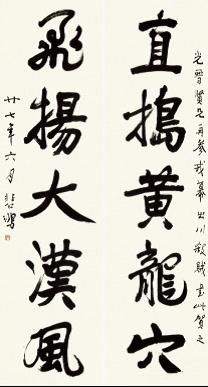 光賢兄再參戎幕出川殺賊書此賀之
直搗黃龍穴
飛揚大漢風
廿七年六月悲鴻